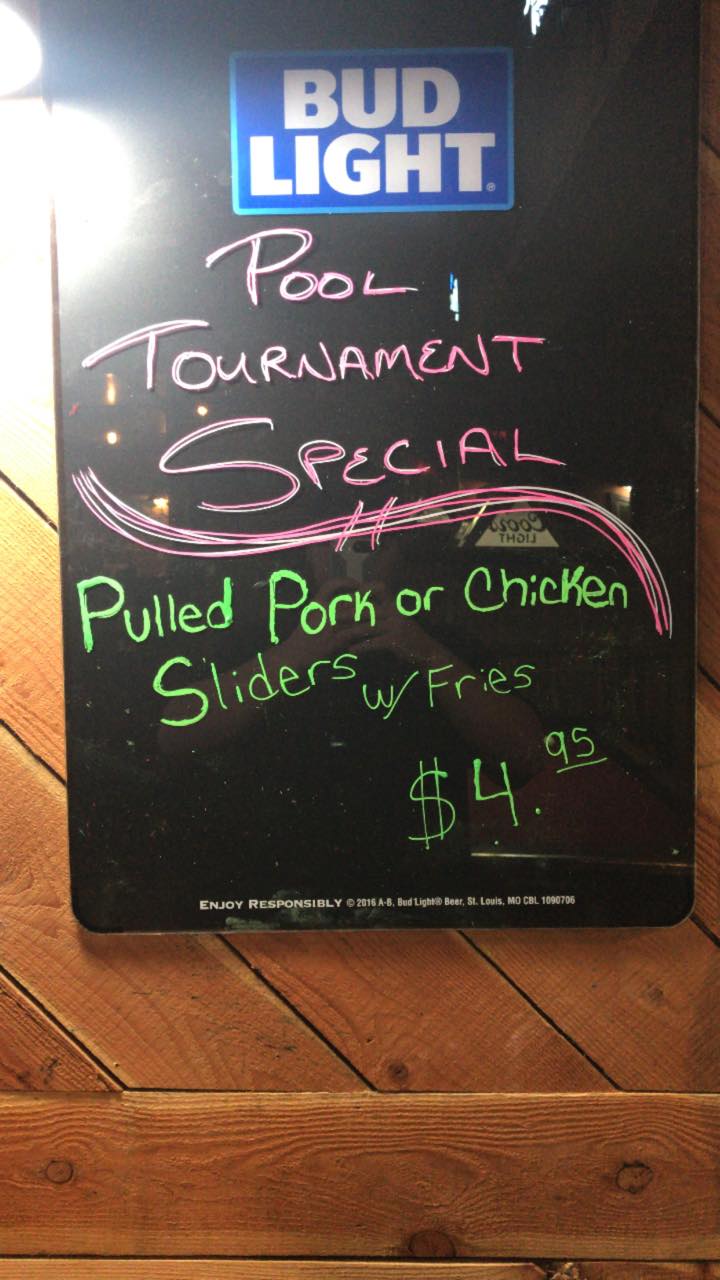 BUD
LIGHT®
POOL
TOURNAMENT
SPECIAL
COORS
LIGHT
Pulled Pork or Chicken
Sliders w/ Fries
$4.95
ENJOY RESPONSIBLY © 2016 A-B, Bud Light® Beer, St. Louis, MO CBL 1090706